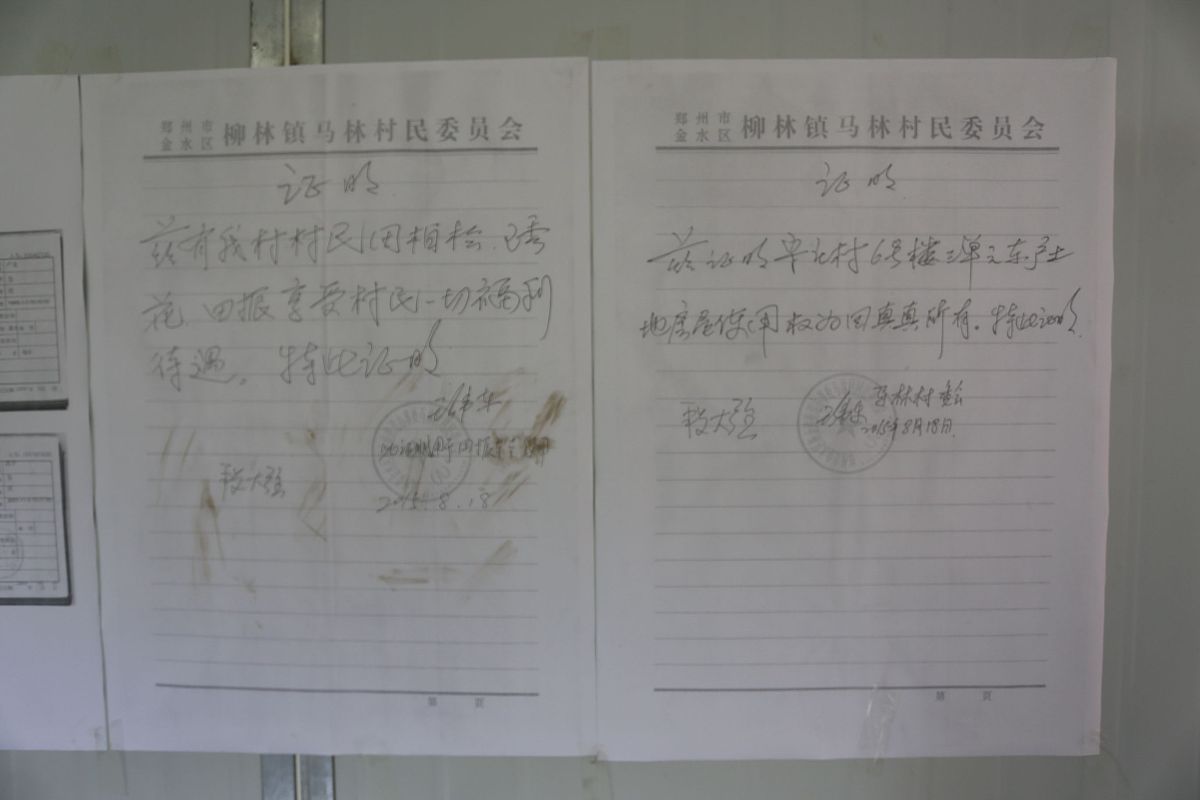 郑州市
金水区 柳林镇马林村民委员会
证明
兹有我村村民田相松、秀
花、田振享受村民一切福利
待遇。特此证明
段大强
2015年8.18
第 页
郑州市
金水区 柳林镇马林村民委员会
证明
兹证明 村6号楼三单元东户土
地房屋使用权为田真真所有。特此证明.
段大强
马林村委会
2015年8月18日.
第 页